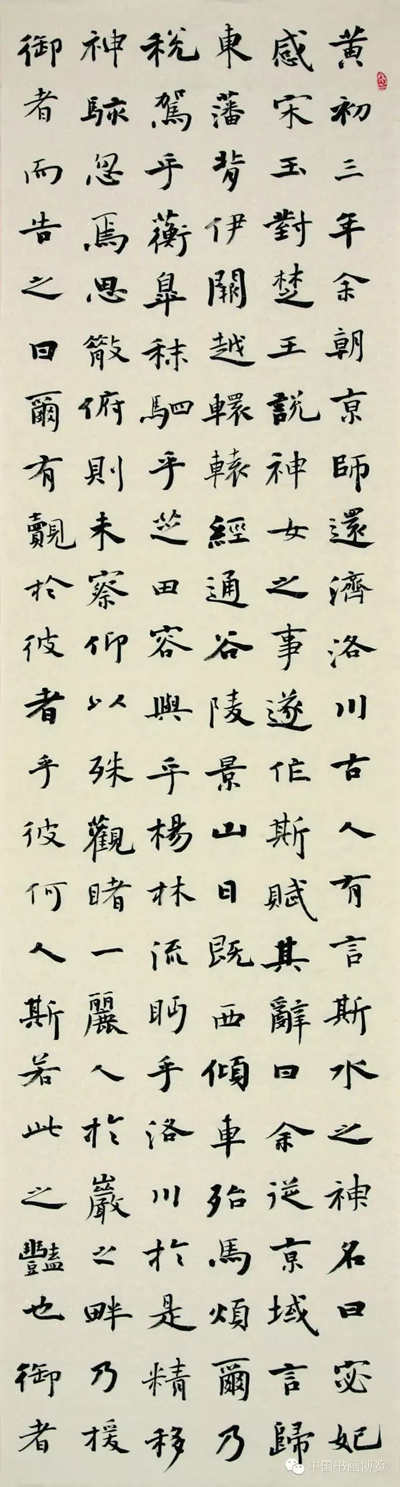 黄初三年余朝京師還濟洛川古人有言斯水之神名曰宓妃
感宋玉對楚王說神女之事遂作斯賦其辭曰余從京域言歸
東藩背伊闕越轘轅經通谷陵景山日既西傾車殆馬煩爾乃
稅駕乎蘅皐秣駟乎芝田容與乎楊林流眄乎洛川於是精移
神駭忽焉思散俯則未察仰以殊觀睹一麗人於巖之畔乃援
御者而告之曰爾有覿於彼者乎彼何人斯若此之豔也御者
中国书画博览